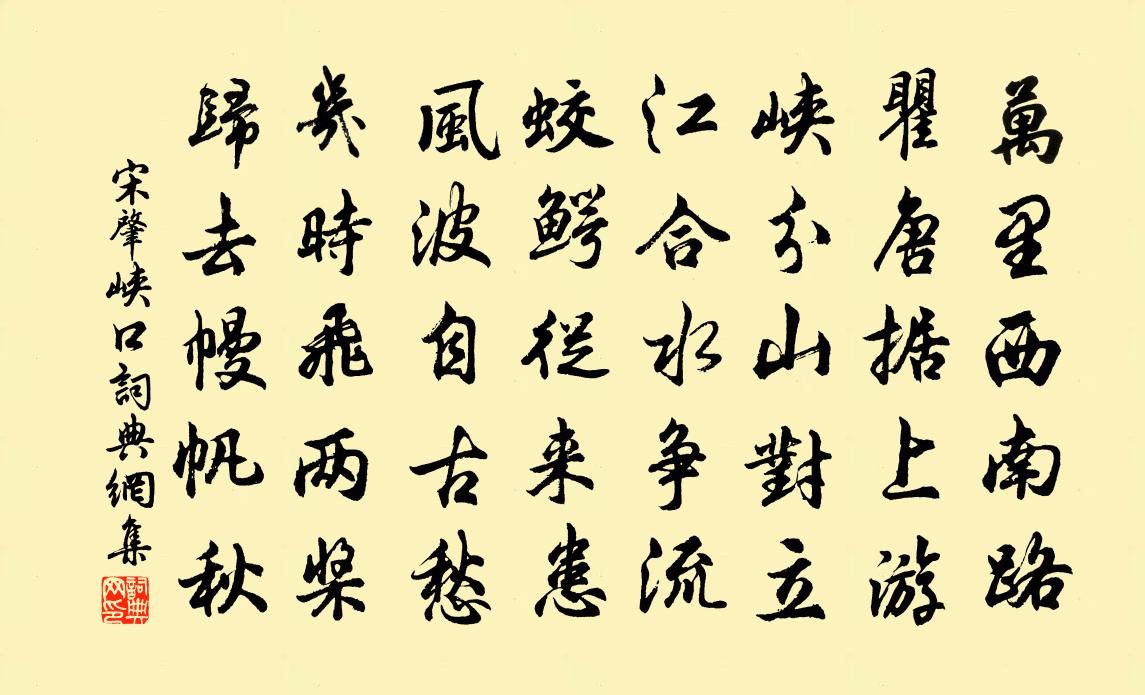 萬里西南路
瞿唐据上游
峡分山對立
江合水争流
蛟鳄從来患
風波自古愁
幾時飛两桨
歸去幔帆秋
宋肇峡口詞典網集
詞典網印